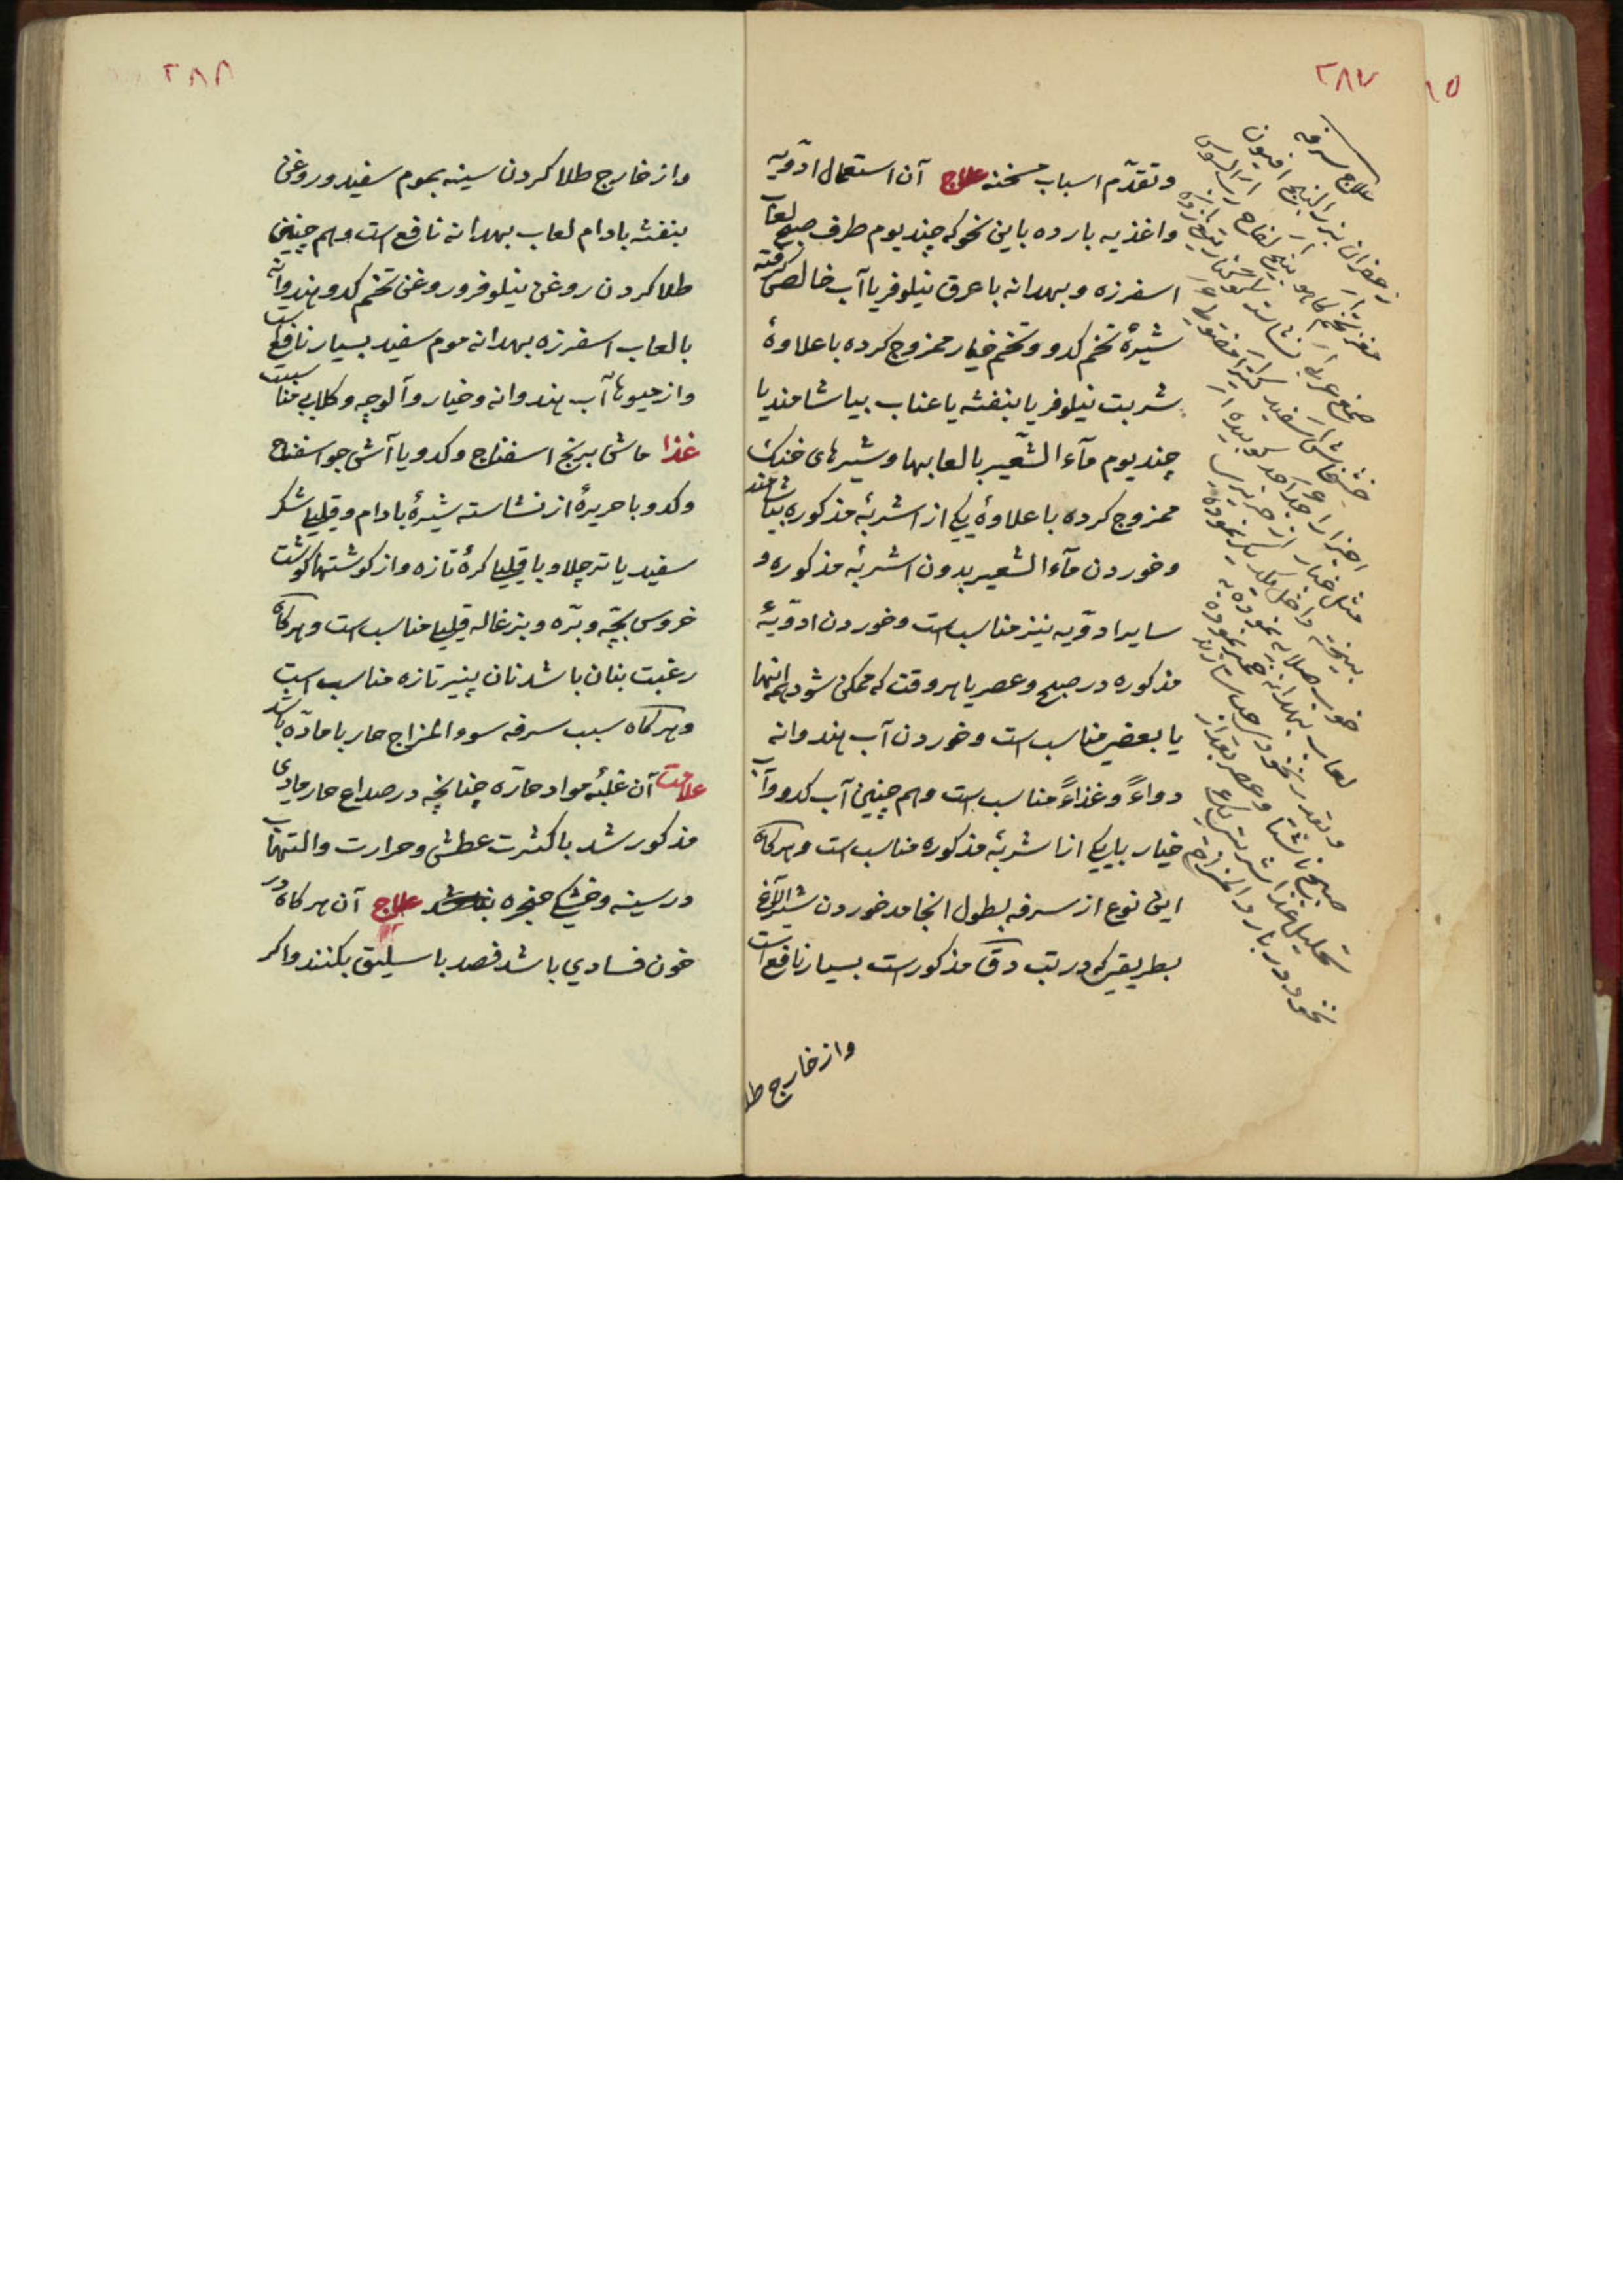 ۲۸۷
۱۵
علاج سرفه
زعفران بزرالبنج افیون
مغز تخم کاهو بیخ لفاح رب السوس
صمغ عربی نشاسته
خشخاش سفید کتیرا
اجزا را جدا جدا کوبیده
مثل غبار از حریر
بیخته داخل یکدیگر نموده
خوب صلایه نموده به
لعاب بهدانه خمیر نموده
و بقدر نخود حب سازند
صبح ناشتا و عصر بعد از
تحلیل غذا
نخود در بارد المزاج
و تقدّم اسباب مسخنه علاج آن استعمال ادویّه
و اغذیه بارده باین نحو که چند یوم طرف صبح لعاب
اسفرزه و بهدانه با عرق نیلوفر یا آب خالص گرفته
شیرهٔ تخم کدو و تخم خیار ممزوج کرده با علاوهٔ
شربت نیلوفر یا بنفشه یا عناب بیاشامند یا
چند یوم مآء الشّعیر با لعابها و شیرهای خنک
ممزوج کرده با علاوهٔ یکی از اشربهٔ مذکوره بیاشامند
و خوردن مآء الشعیر بدون اشربهٔ مذکوره و
سایر ادویّه نیز مناسب است و خوردن ادویّهٔ
مذکوره در صبح و عصر یا هر وقت که ممکن شود همه اینها
یا بعضی مناسب است و خوردن آب هندوانه
دواءً و غذاءً مناسب است و هم چنین آب کدو و آب
خیار با یکی از اشربهٔ مذکوره مناسب است و هر کاه
این نوع از سرفه بطول انجامد خوردن شیر الاغ
بطریقی که در تب دق مذکورست بسیار نافع است
و از خارج طلا
۲۸۸
و از خارج طلا کردن سینه بموم سفید و روغن
بنفشه بادام لعاب بهدانه نافع است و هم چنین
طلا کردن روغن نیلوفر و روغن تخم کدو و هندوانه
با لعاب اسفرزه بهدانه موم سفید بسیار نافع است
و از میوه‌ها آب هندوانه و خیار و آلوچه و کلابی مناسبست
غذا ماش برنج اسفناج و کدو یا آش جو اسفناج
و کدو با حریرهٔ از نشاسته شیرهٔ بادام و قلیلی شکر
سفید یا تر چلاو با قلیلی کرهٔ تازه و از کوشتها کوشت
خروس بچّه و برّه و بزغاله قلیلی مناسب است و هر کاه
رغبت بنان باشد نان پنیر تازه مناسب است
و هر کاه سبب سرفه سوء المزاج حار با مادّه باشد
علامت آن غلبهٔ مواد حارّه چنانچه در صداع حار مادی
مذکور شد با کثرت عطش و حرارت و التهاب
در سینه و خشکی حنجره علاج آن هر کاه در
خون فسادی باشد فصد باسلیق بکنند و اکر